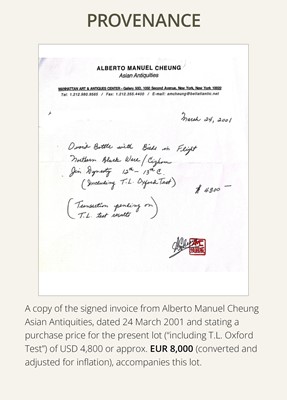 PROVENANCE
ALBERTO MANUEL CHEUNG
Asian Antiquities
MANHATTAN ART & ANTIQUES CENTER - Gallery 50D, 1050 Second Avenue, New York, New York 10022
Tel: 1.212.593.9060 / Fax: 1.212.280.4400 / E-mail: amcheung@bellatlantic.net
March 24, 2001
Ovoid Bottle with Birds in Flight
Northern Black Ware / Cizhou
Jin Dynasty 12th - 13th C.
(Including T.L. Oxford Test) $ 4800 —
(Transaction pending on
T.L. test results)
A copy of the signed invoice from Alberto Manuel Cheung
Asian Antiquities, dated 24 March 2001 and stating a
purchase price for the present lot (“including T.L. Oxford
Test”) of USD 4,800 or approx. EUR 8,000 (converted and
adjusted for inflation), accompanies this lot.